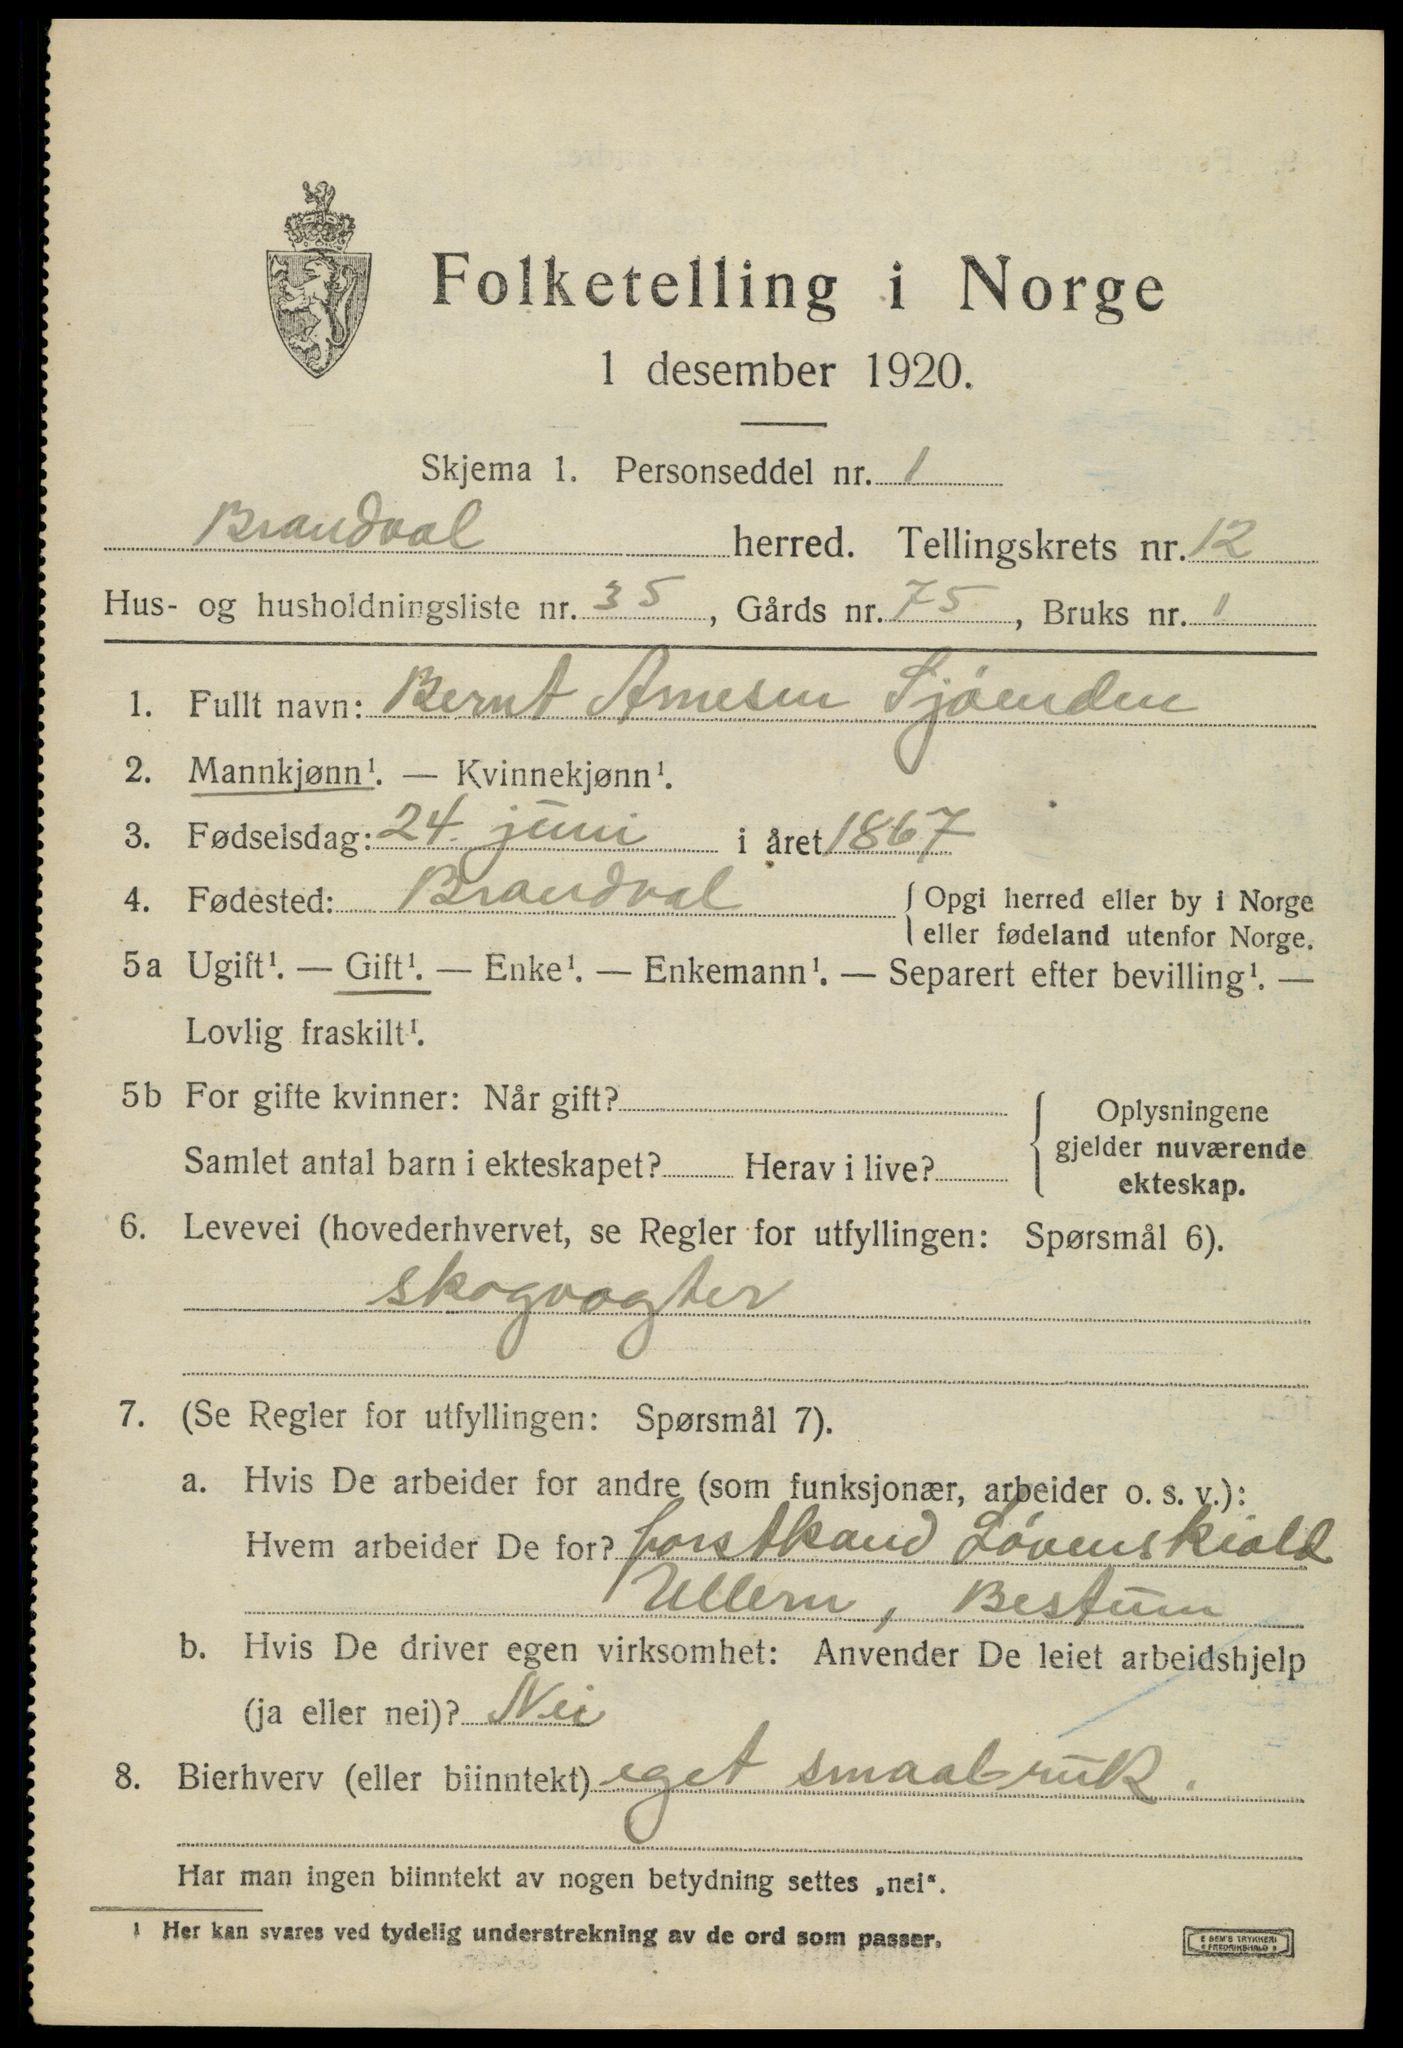 Folketelling i Norge
1 desember 1920.
Skjema 1. Personseddel nr. 1
Brandval herred. Tellingskrets nr. 12
Hus- og husholdningsliste nr. 35, Gårds nr. 75, Bruks nr. 1
1. Fullt navn: Bernt Arnesen Sjøenden
2. Mannkjønn¹. — Kvinnekjønn¹.
3. Fødselsdag: 24. juni i året 1867
4. Fødested: Brandval { Opgi herred eller by i Norge
eller fødeland utenfor Norge.
5a Ugift¹. — Gift¹. — Enke¹. — Enkemann¹. — Separert efter bevilling¹. —
Lovlig fraskilt¹.
5b For gifte kvinner: Når gift?
Samlet antal barn i ekteskapet? Herav i live?
{ Oplysningene
gjelder nuværende
ekteskap.
6. Levevei (hovederhvervet, se Regler for utfyllingen: Spørsmål 6).
skogvogter
7. (Se Regler for utfyllingen: Spørsmål 7).
a. Hvis De arbeider for andre (som funksjonær, arbeider o. s. v.):
Hvem arbeider De for? forstkand Løvenskiold
Ullern, Bestum
b. Hvis De driver egen virksomhet: Anvender De leiet arbeidshjelp
(ja eller nei)? Nei
8. Bierhverv (eller biinntekt) eget smaabruk.
Har man ingen biinntekt av nogen betydning settes „nei“.
1 Her kan svares ved tydelig understrekning av de ord som passer.
E SEM'S TRYKKERI
FREDRIKSHALD